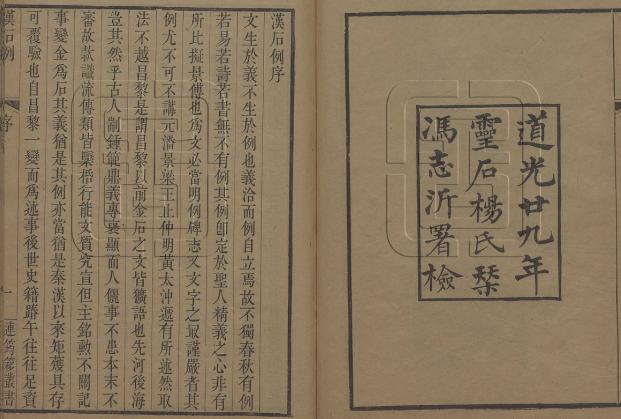 道光廿九年
靈石楊氏栞
馮志沂署檢
漢石例序
文生於義不生於例也義洽而例自立焉故不獨春秋有例
若易若詩若書無不有例其例卽定於聖人精義之心非有
所比擬景傅也爲文必當明例碑志又文字之最謹嚴者其
例尤不可不講元潘景梁王止仲明黃太沖遞有所述然取
法不越昌黎是謂昌黎以前金石之文皆獷語也先河後海
豈其然乎古人制鍾範鼎義專褒顯而人儷事不患本末不
審故款識流傳類皆槩揩行能文質究宣但主銘勲不關記
事變金爲石其義猶是其例亦當猶是秦漢以來矩矱具存
可覆驗也自昌黎一變而爲述事後世史籍踳午往往足資
漢石例
序
一
連筠簃叢書